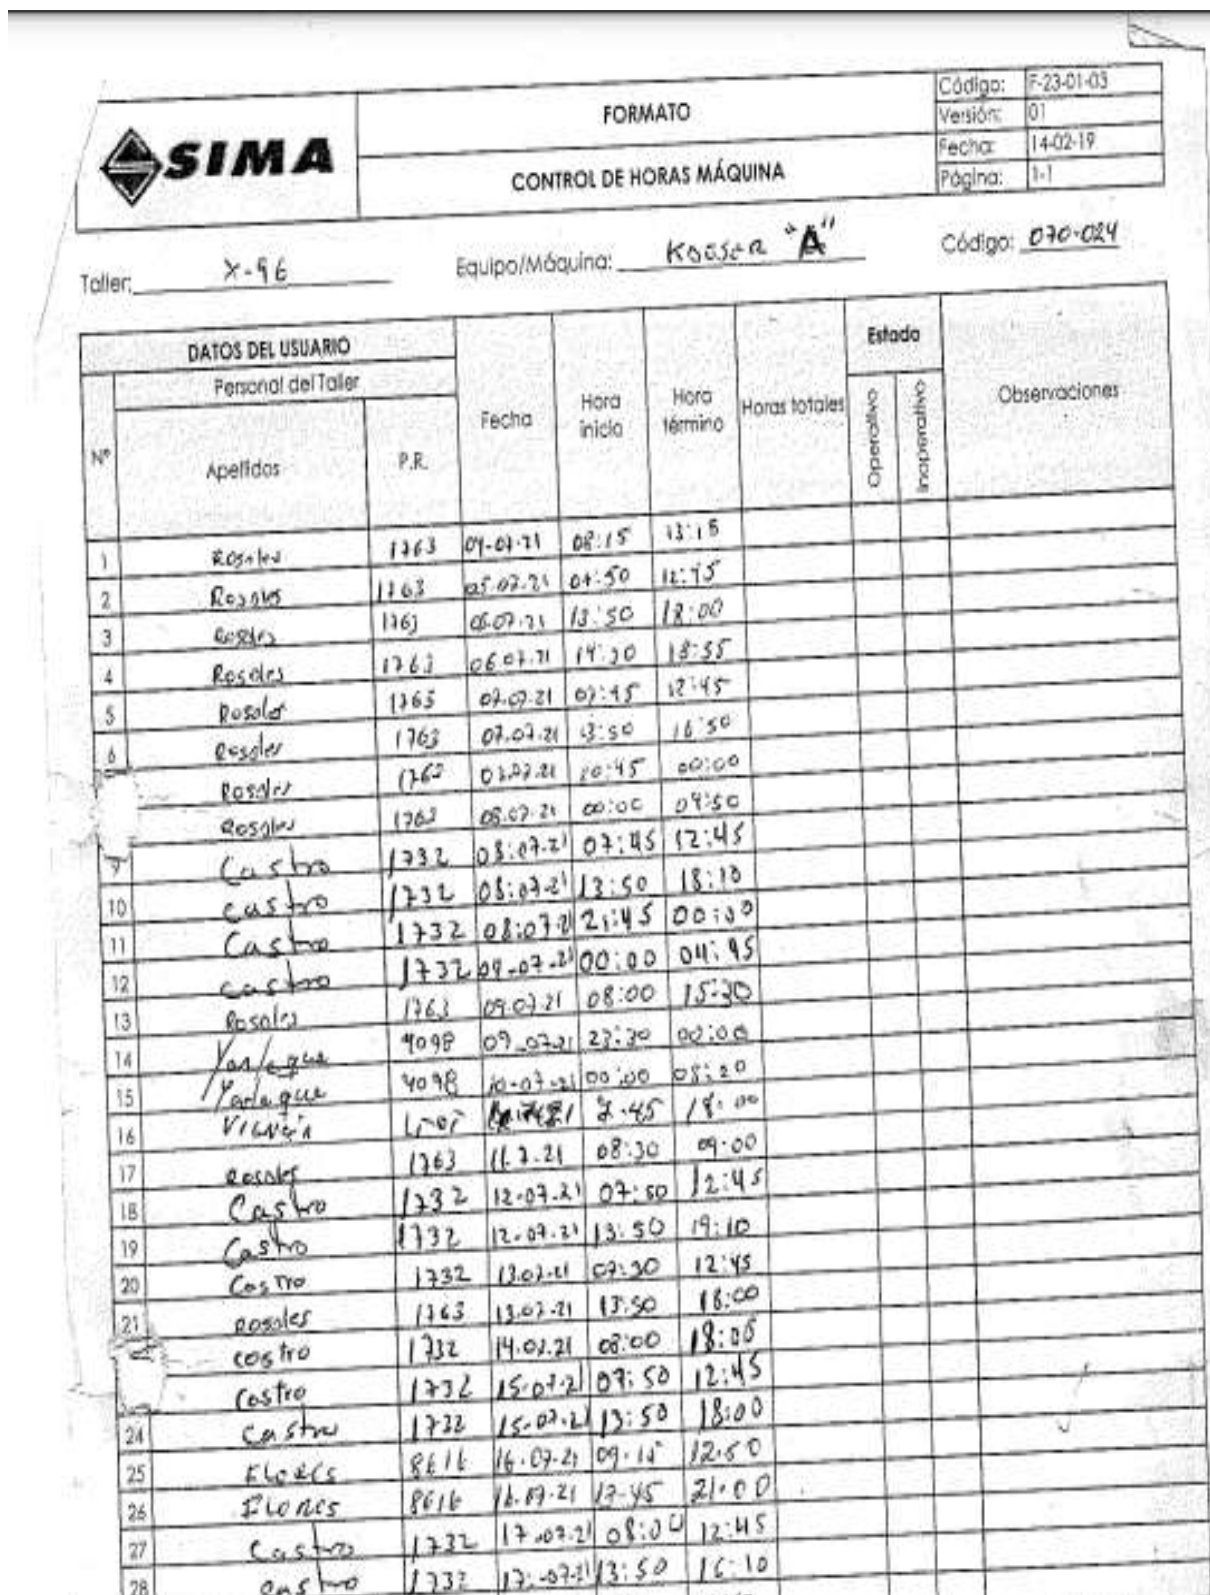 SIMA
FORMATO
CONTROL DE HORAS MÁQUINA
Código: F-23-01-03
Versión: 01
Fecha: 14-02-19
Página: 1-1
Taller: X-96 Equipo/Máquina: "A" Código: 070-024
DATOS DEL USUARIO
Personal del Taller
Nº Apellidos P.R. Fecha Hora inicio Hora término Horas totales Estado Operativo Inoperativo Observaciones
1 Rosales 1763 08:15 13:15
2 Rosales 1763 05.07.21 07:50 12:45
3 Rosales 1763 06.07.21 13:50 18:00
4 Rosales 1763 06.07.21 18:55
5 Rosales 1763 07.07.21 07:45 12:45
6 Rosales 1763 07.07.21 13:50 16:50
Rosales 1763 20:45 00:00
Rosales 1763 08.07.21 00:00 04:50
9 Castro 1732 08:07.21 07:45 12:45
10 Castro 1732 08:07.21 13:50 18:10
11 Castro 1732 08:07.21 21:45 00:00
12 Castro 1732 09-07-21 00:00 04:45
13 Rosales 1763 09.07.21 08:00 15:30
14 Yarleque 4098 09-07-21 23:30 00:00
15 Yarleque 4098 10-07-21 00:00 08:20
16 7.45 18:00
17 Rosales 1763 11.7.21 08:30 09:00
18 Castro 1732 12-07.21 07:50 12:45
19 Castro 1732 12-07.21 13:50 19:10
20 Castro 1732 13.07.21 07:30 12:45
21 Rosales 1763 13.07-21 13:50 18:00
Castro 1732 14.07.21 08:00 18:05
Castro 1732 15-07-21 07:50 12:45
24 Castro 1732 15-07.21 13:50 18:00
25 FLORES 8616 16-07-21 09-15 12:50
26 FLORES 8616 16.07-21 21:00
27 Castro 1732 17-07.21 08:00 12:45
28 Castro 1732 17-07-21 13:50 16:10